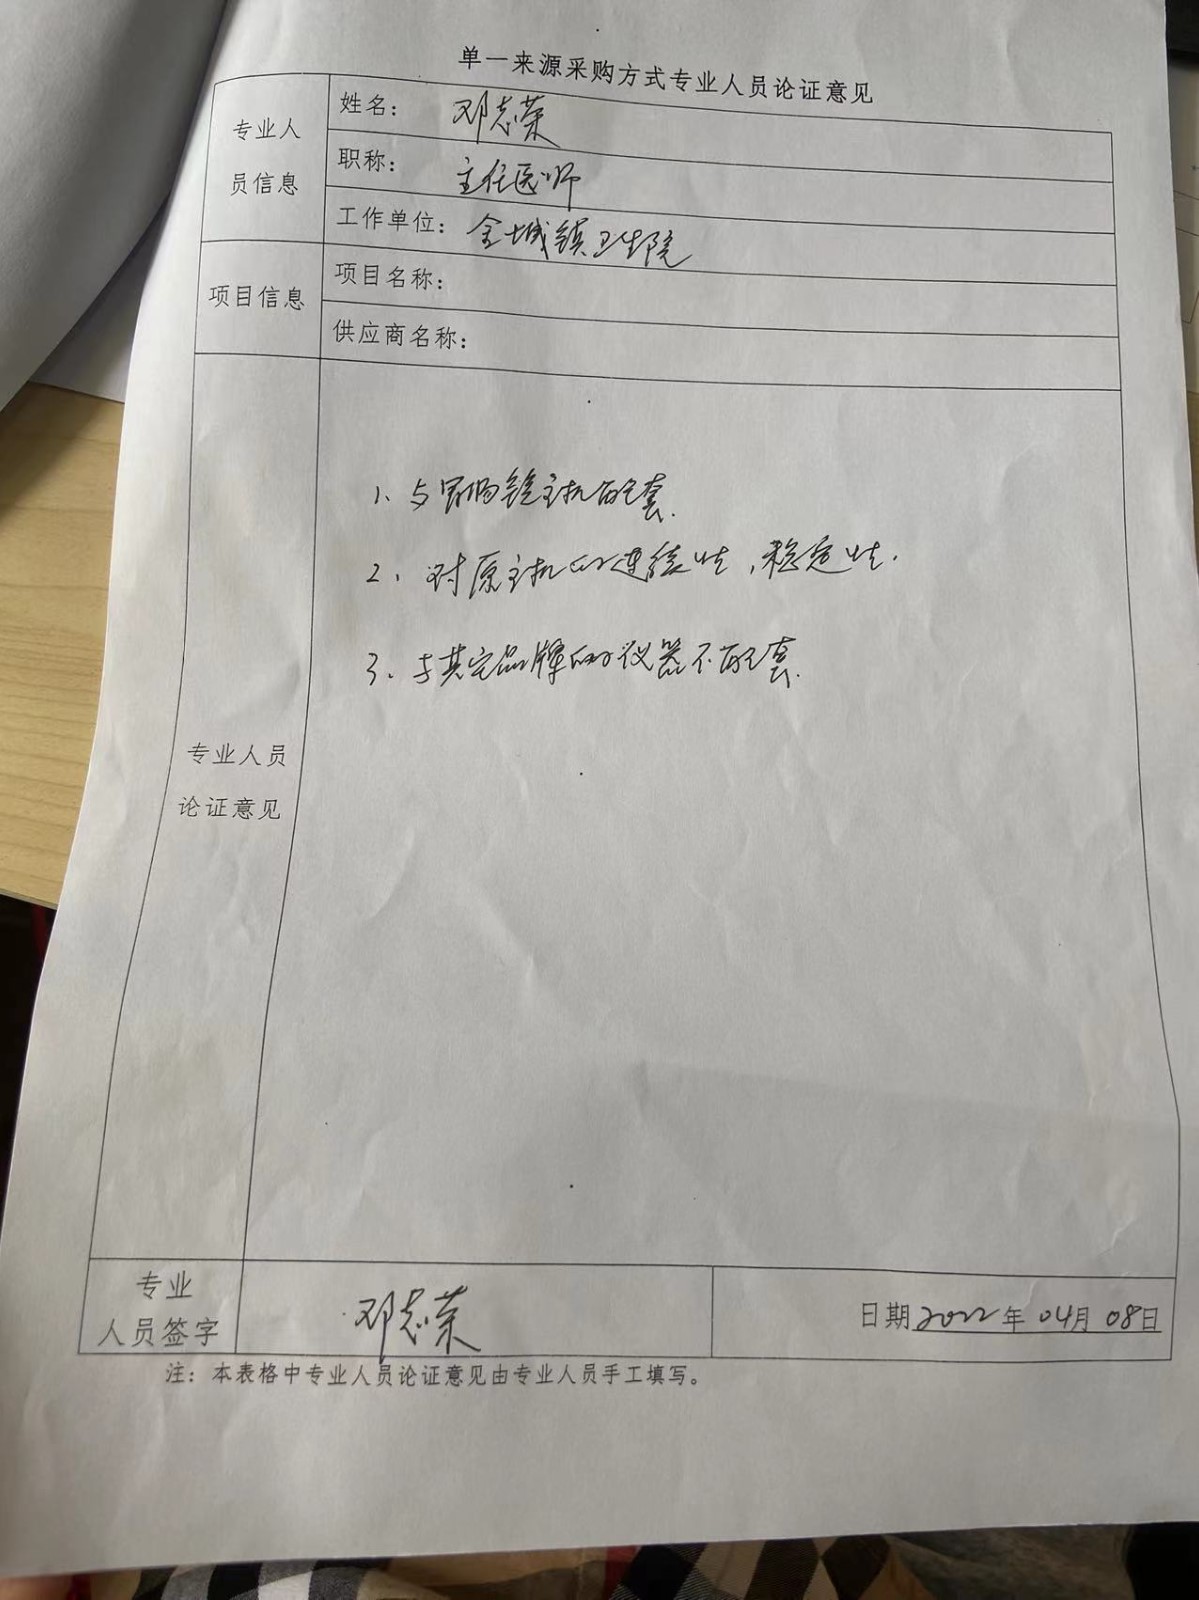 单一来源采购方式专业人员论证意见
专业人员信息
姓名： 邓志荣
职称： 主任医师
工作单位： 金城镇卫生院
项目信息
项目名称：
供应商名称：
专业人员论证意见
1、与胃肠镜主机配套.
2、对原主机的连续性，稳定性.
3、与其它品牌的仪器不配套.
专业人员签字
邓志荣
日期2022年04月08日
注：本表格中专业人员论证意见由专业人员手工填写。